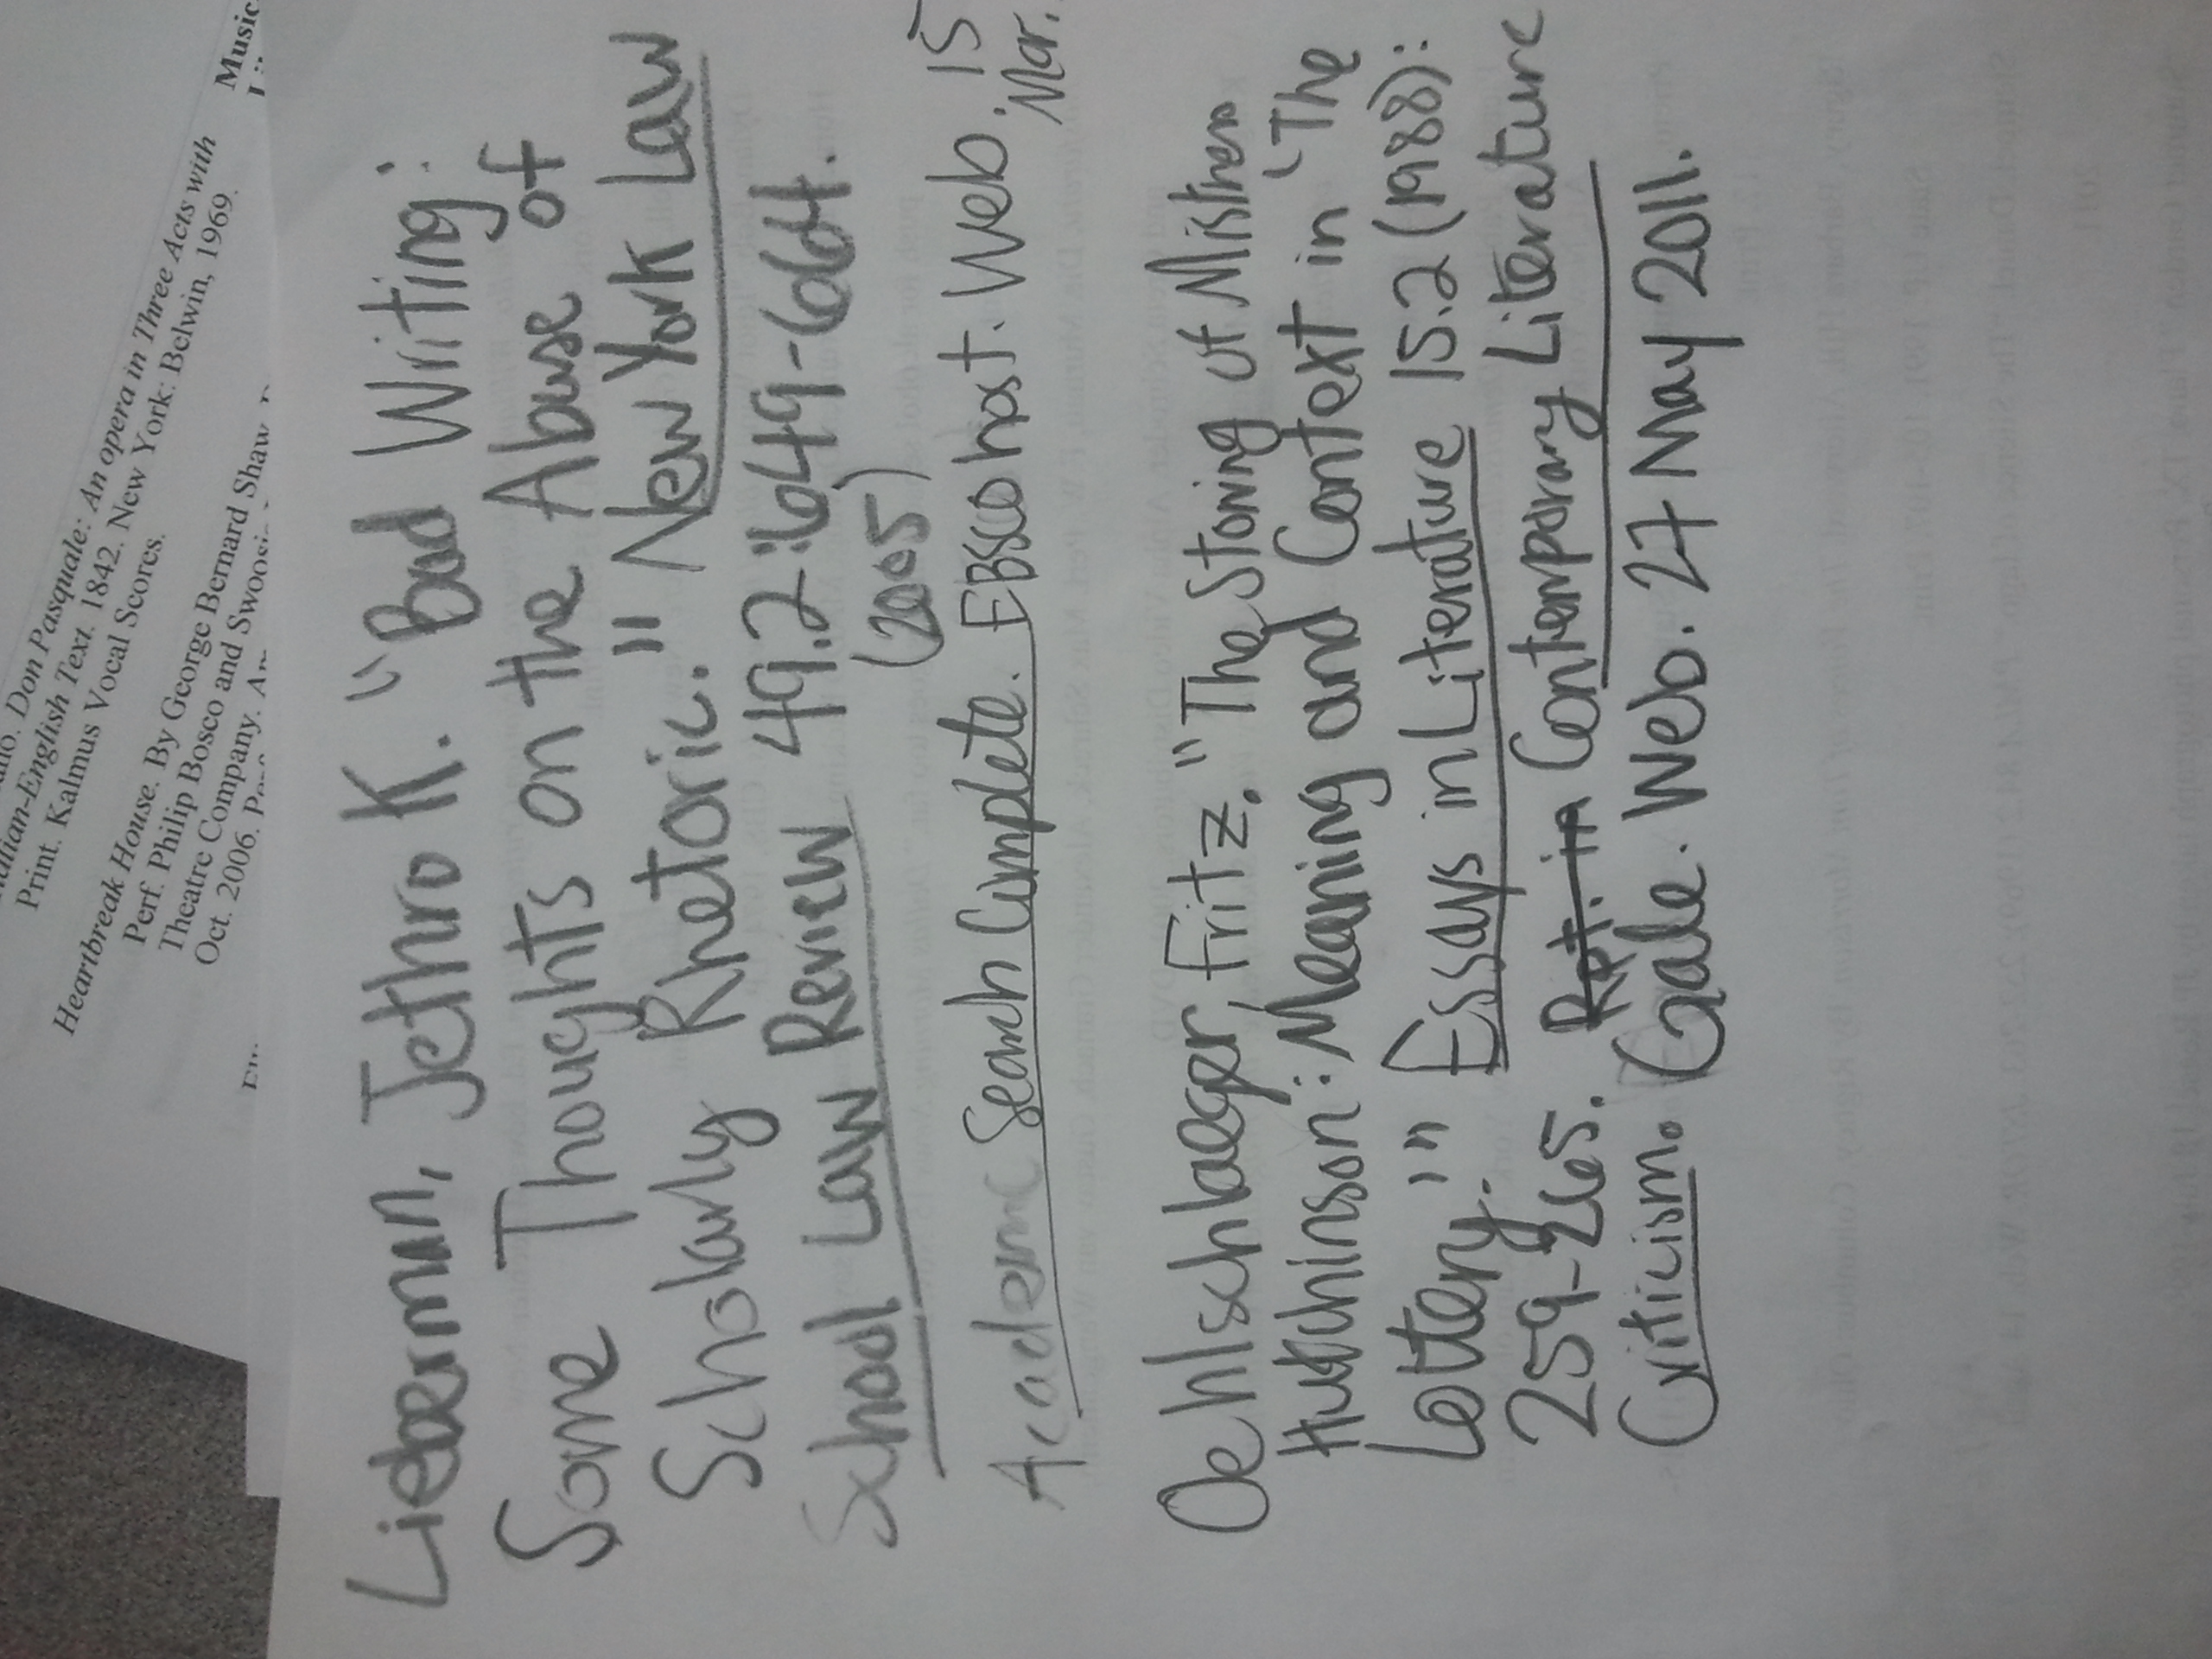 Don Pasquale: An opera in Three Acts with
-English Text. 1842. New York: Belwin, 1969.
Print. Kalmus Vocal Scores.
Music
Heartbreak House. By George Bernard Shaw.
Perf. Philip Bosco and Swoosie
Theatre Company.
Oct. 2006.
Lieberman, Jethro K. "Bad Writing:
Some Thoughts on the Abuse of
Scholarly Rhetoric." New York Law
School Law Review 49.2:649-664.
(2005)
Academic Search Complete. EBSCOhost. Web. 15
Mar.
Oehlschlaeger, Fritz. "The Stoning of Mistress
Hutchinson: Meaning and Context in 'The
Lottery.'" Essays in Literature 15.2 (1988):
259-265. Rpt. in Contemporary Literature
Criticism. Gale. Web. 27 May 2011.